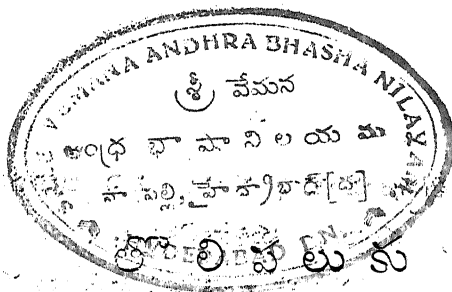 VEMANA ANDHRA BHASHA NILAYAM
శ్రీ వేమన
ఆంధ్ర భాషా నిలయము
తొలిపలుకు